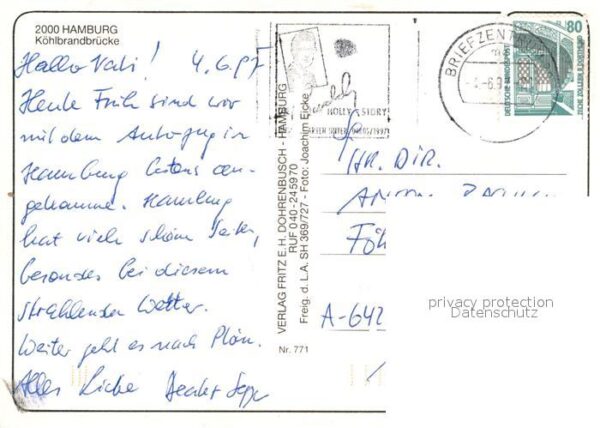 2000 HAMBURG
Köhlbrandbrücke
Hallo Vati! 4.6.97
Heute Früh sind wir
mit dem Autozug in
Hamburg bestens an-
gekommen. Hamburg
hat viele schöne Seiten,
besonders bei diesem
strahlenden Wetter.
Weiter geht es nach Plön.
Alles Liebe
VERLAG FRITZ E. H. DOHRENBUSCH - HAMBURG
RUF 040-245970
Freig. d. L.A. SH 369/727 - Foto: Joachim Eicke
Nr. 771
HOLLY STORY
BRIEFZENTRUM
80
DEUTSCHE BUNDESPOST
HR. DIR.
A-642
privacy protection
Datenschutz